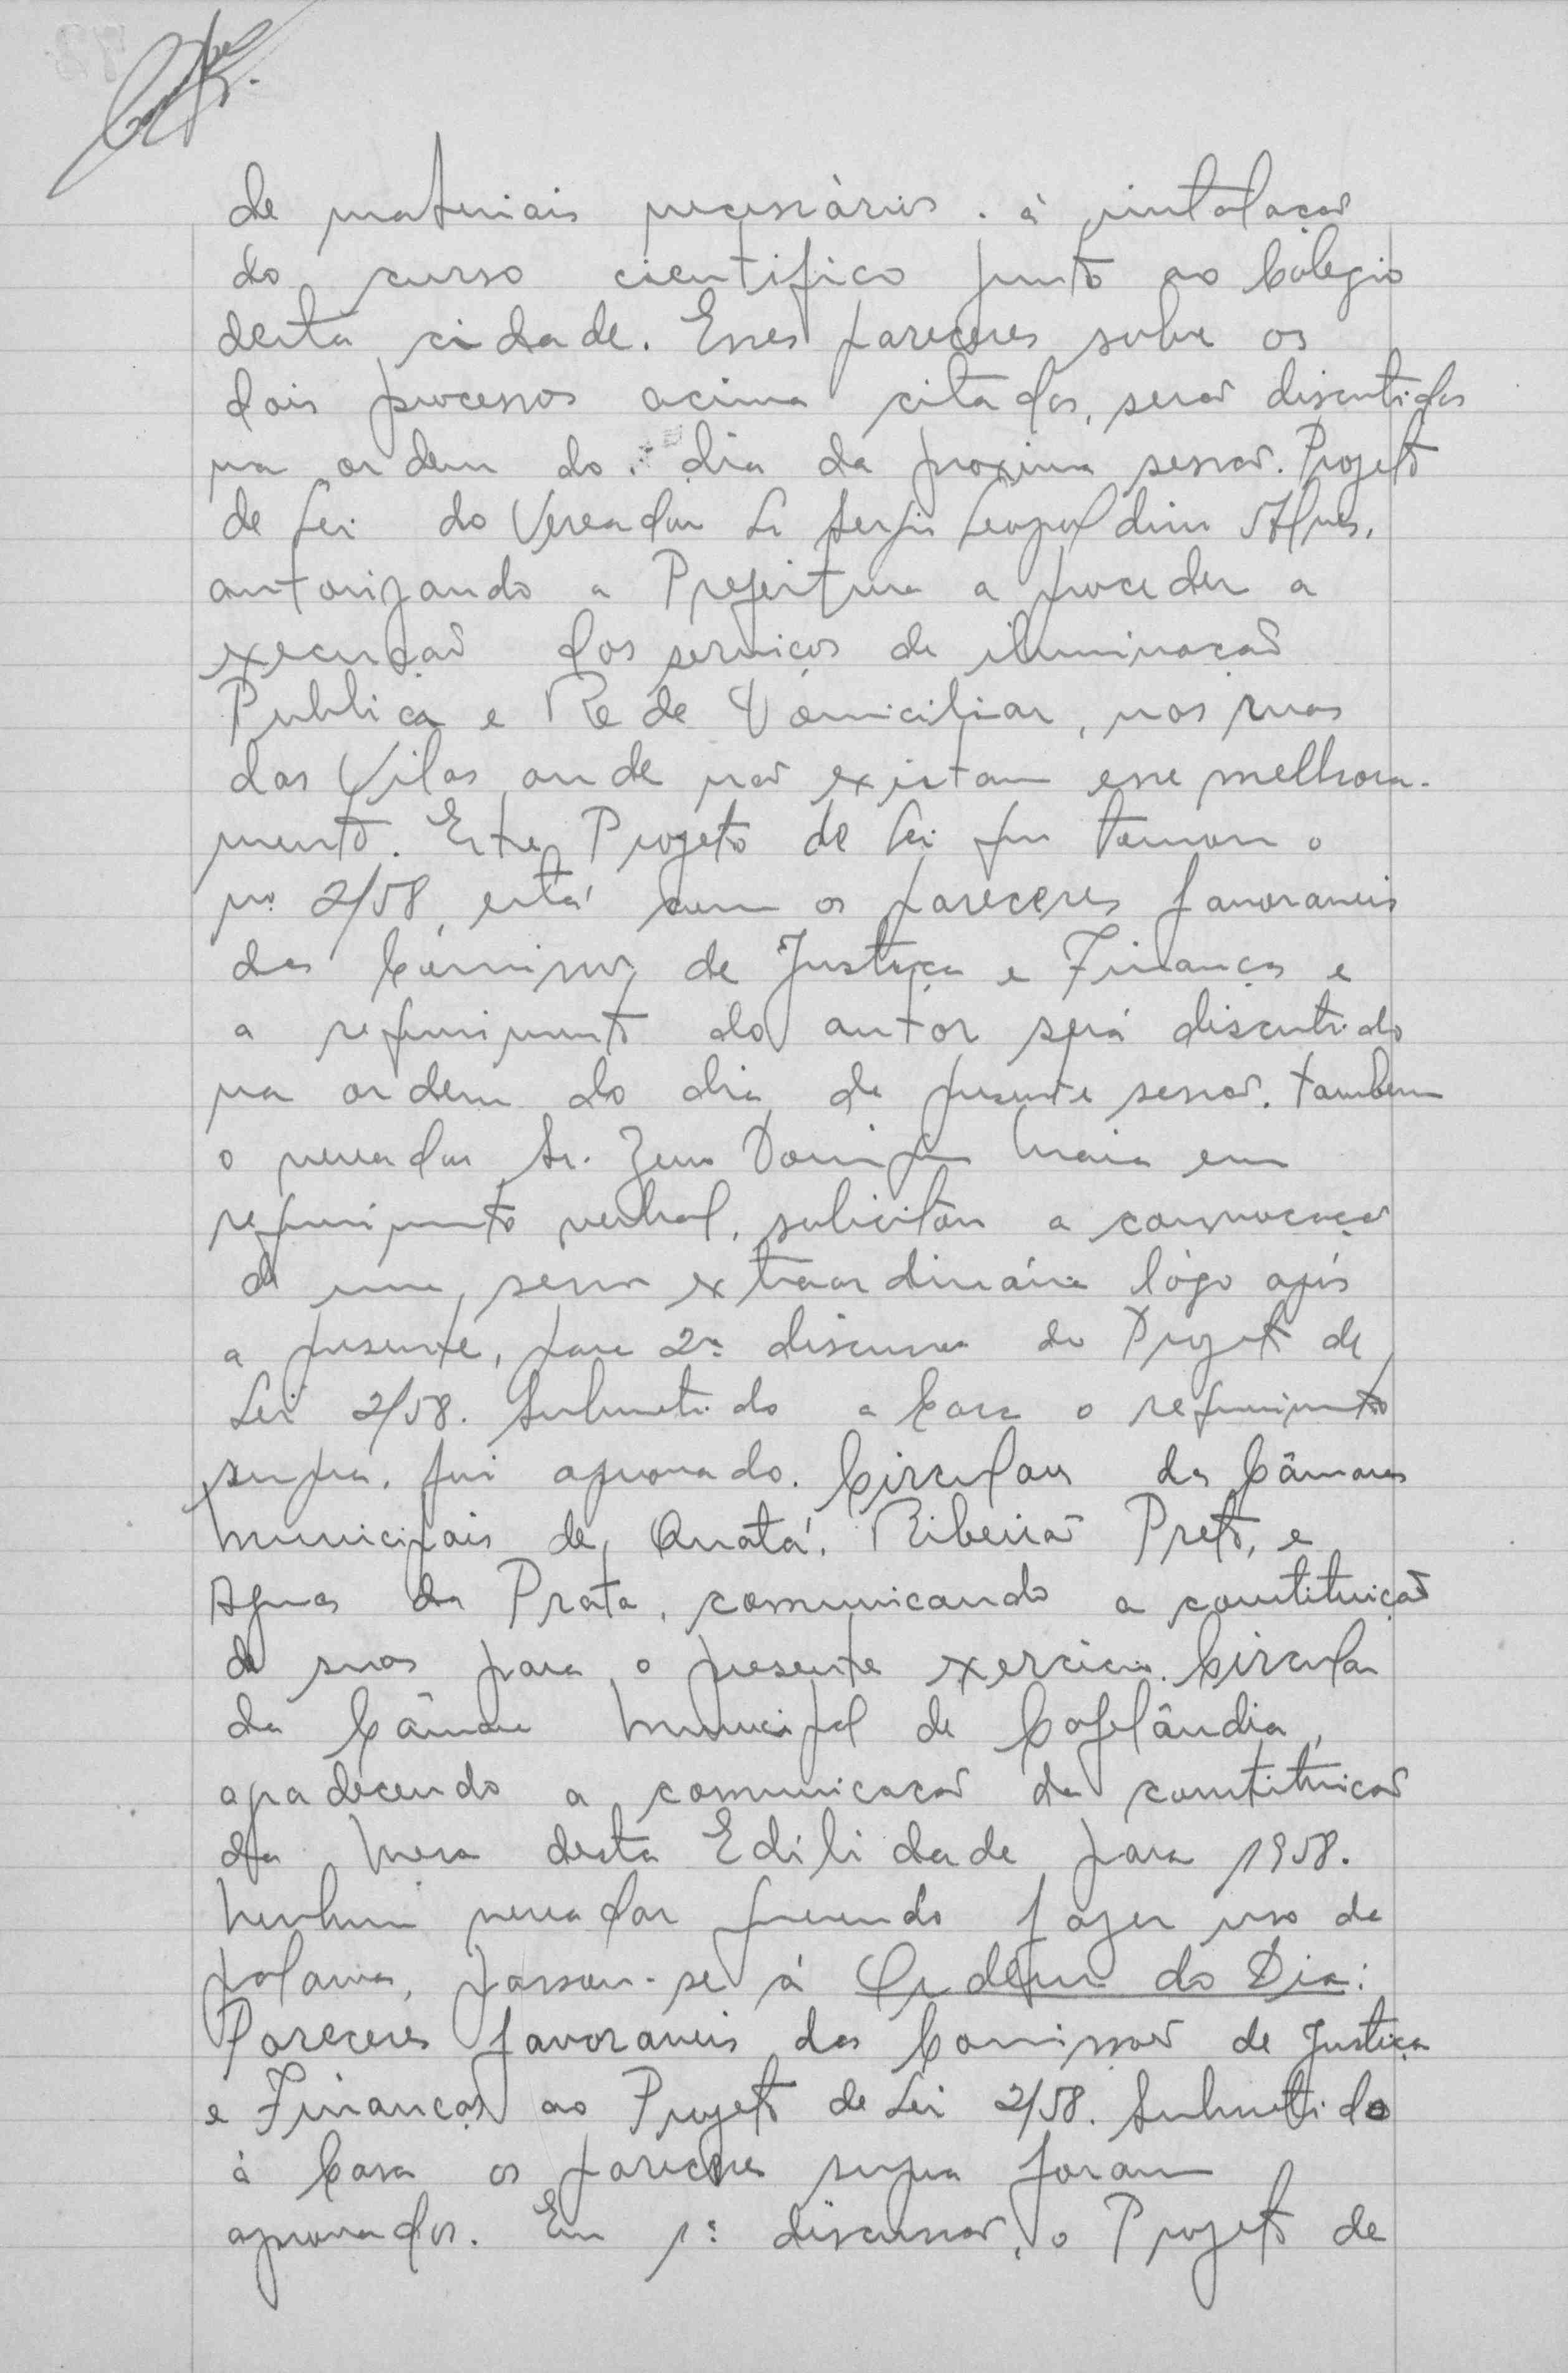 de materiais necessários à instalação
do curso cientifico junto ao Colégio
desta cidade. Esses pareceres sobre os
dois processos acima citados, serão discutidos
na ordem do dia da proxima sessão. Projeto
de Lei do Vereador Sr Sergio Leopoldino Alves,
autorizando a Prefeitura a proceder a
execução dos serviços de iluminação
Publica e Rede Domiciliar, nas ruas
das Vilas onde não existam esse melhora-
mento. Este Projeto de Lei que tomou o
nº 2/58, está com os pareceres favoraveis
das Comissões de Justiça e Finanças e
a requerimento do autor será discutido
na ordem do dia da presente sessão. também
o vereador Sr. Zeno Domingos Maia em
requerimento verbal, solicitou a convocação
de uma sessão extraordinária lógo após
a presente, para 2ª discussão do Projeto de
Lei 2/58. Submetido a Casa o requerimento
supra, foi aprovado. Circulares das Câmaras
Municipais de Quatá, Ribeirão Preto, e
Aguas da Prata, comunicando a constituição
de suas para o presente exercicio. Circular
da Câmara Municipal de Cafelândia,
agradecendo a comunicação da constituição
da Mesa desta Edilidade para 1958.
Nenhum vereador querendo fazer uso da
palavra, passou-se á Ordem do Dia:
Pareceres favoraveis das Comissões de Justiça
e Finanças ao Projeto de Lei 2/58. Submetido
à Casa os pareceres supra foram
aprovados. Em 1ª discussão, o Projeto de